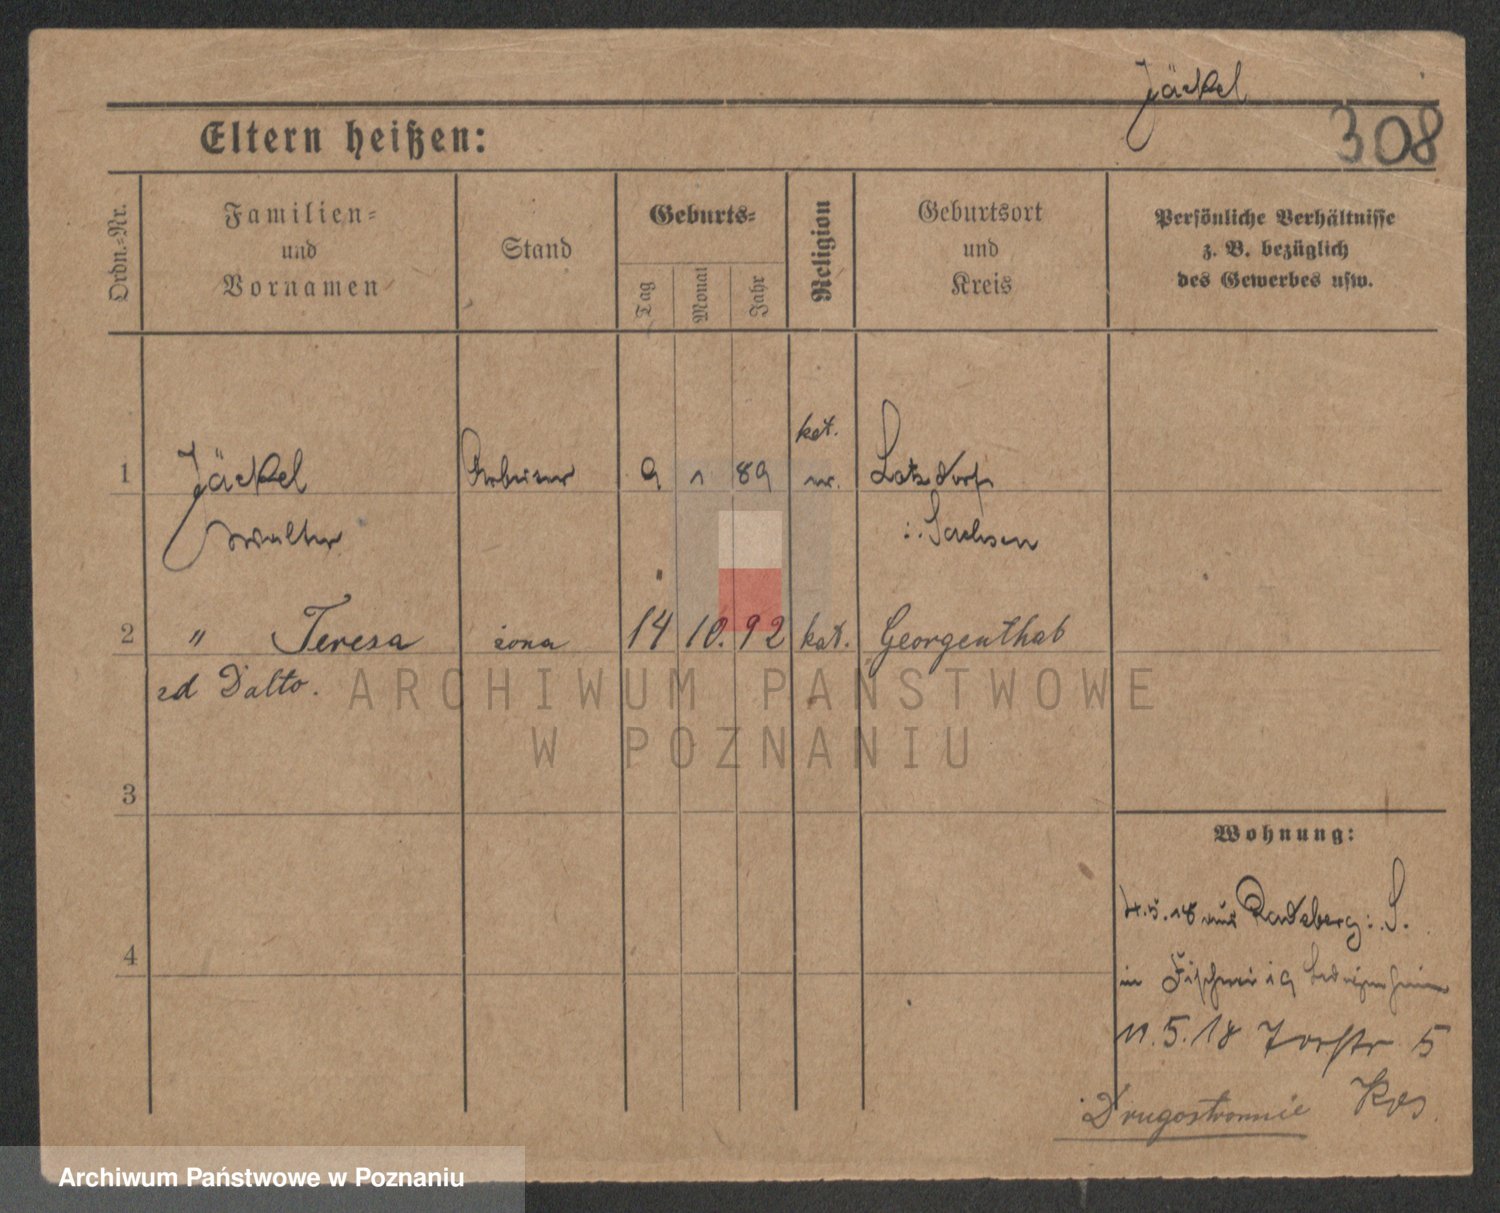 Jäckel
308
Eltern heißen:
Ordn.-Nr.
Familien-
und
Vornamen
Stand
Geburts-
Tag
Monat
Jahr
Religion
Geburtsort
und
Kreis
Persönliche Verhältnisse
z. B. bezüglich
des Gewerbes usw.
kat.
1 Jäckel Arbeiter 9 1 89
Walter
Sachsen
2 " Teresa żona 14 10. 92 kat. Georgenthal
zd Dalto.
ARCHIWUM PAŃSTWOWE
W POZNANIU
3
Wohnung:
4.5.18 aus Radeberg i. S.
4
in
11.5.18 5
Drugostronnie
Archiwum Państwowe w Poznaniu